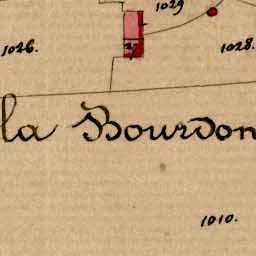 1029
1026.
1028.
la Bourdon
1010.